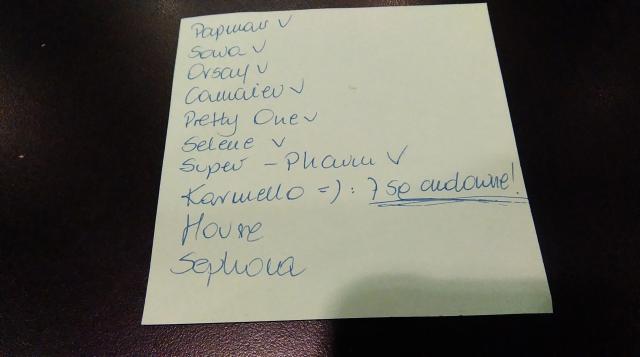 Paprnar V
Sowa V
Orsay V
Camaieu V
Pretty One V
Selene V
Super - Pharm V
Karmello =) : ) są cudowne!
House
Sephora